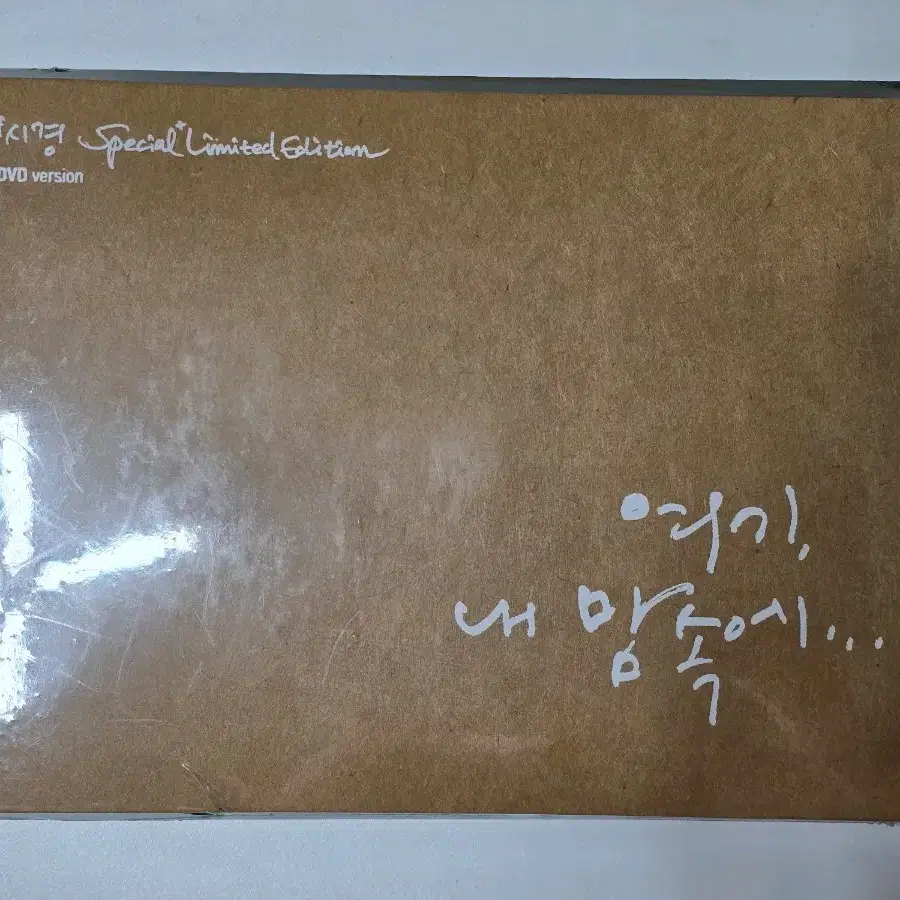 시경 Special+ Limited Edition
DVD version
여기,
내 맘 속에...